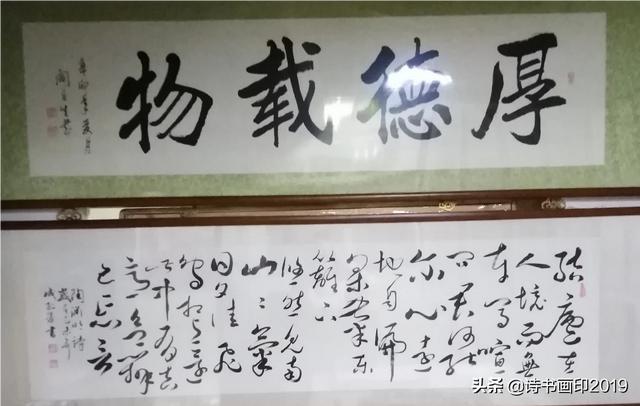 厚德載物
辛卯年夏月
結廬在
人境而無
車馬喧
問君何能
爾心遠
地自偏
采菊東
籬下
悠然見南
山〻氣
日夕佳飛
鳥相與還
此中有真
意欲辨
已忘言
陶淵明詩
头条@诗书画印2019